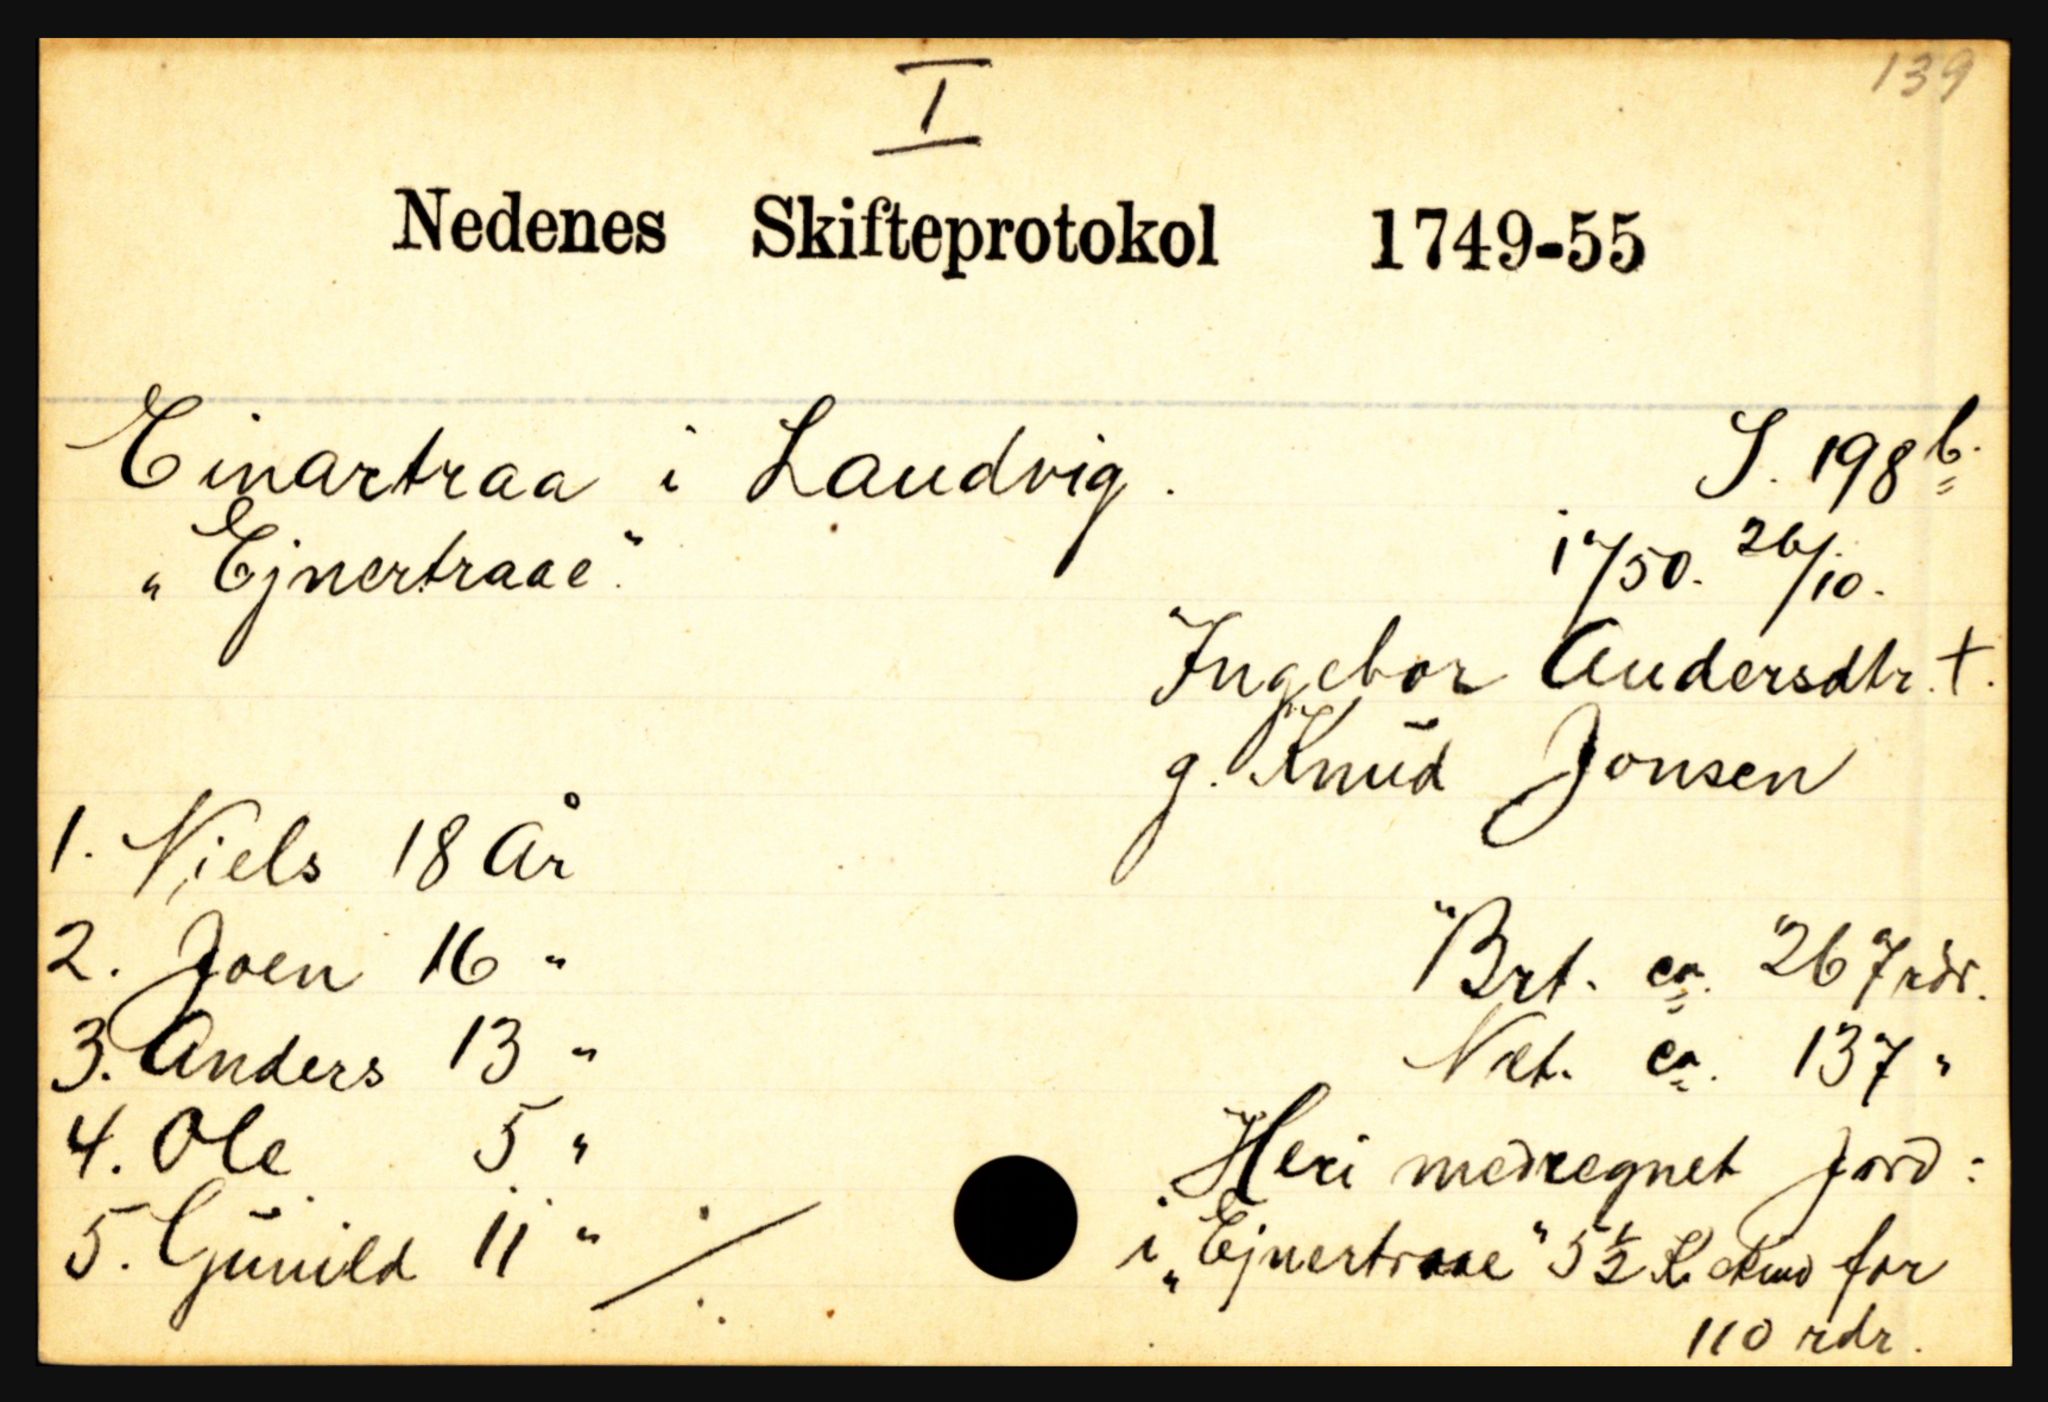 139
I
Nedenes Skifteprotokol 1749-55
Einartraa i Landvig. S. 198 b.
"Ejnertraae". 17/50. 26/10.
Ingebor Andersdtr. †.
g. Knud Jonsen
1. Niels 18 År
2. Joen 16 "
Brt. ca. 267 rdr.
3. Anders 13 "
Net. ca. 137 "
4. Ole 5 "
Heri medregnet Jord:
5. Gunild 11 "
i "Ejnertraae" 5½ K. skind for
110 rdr.